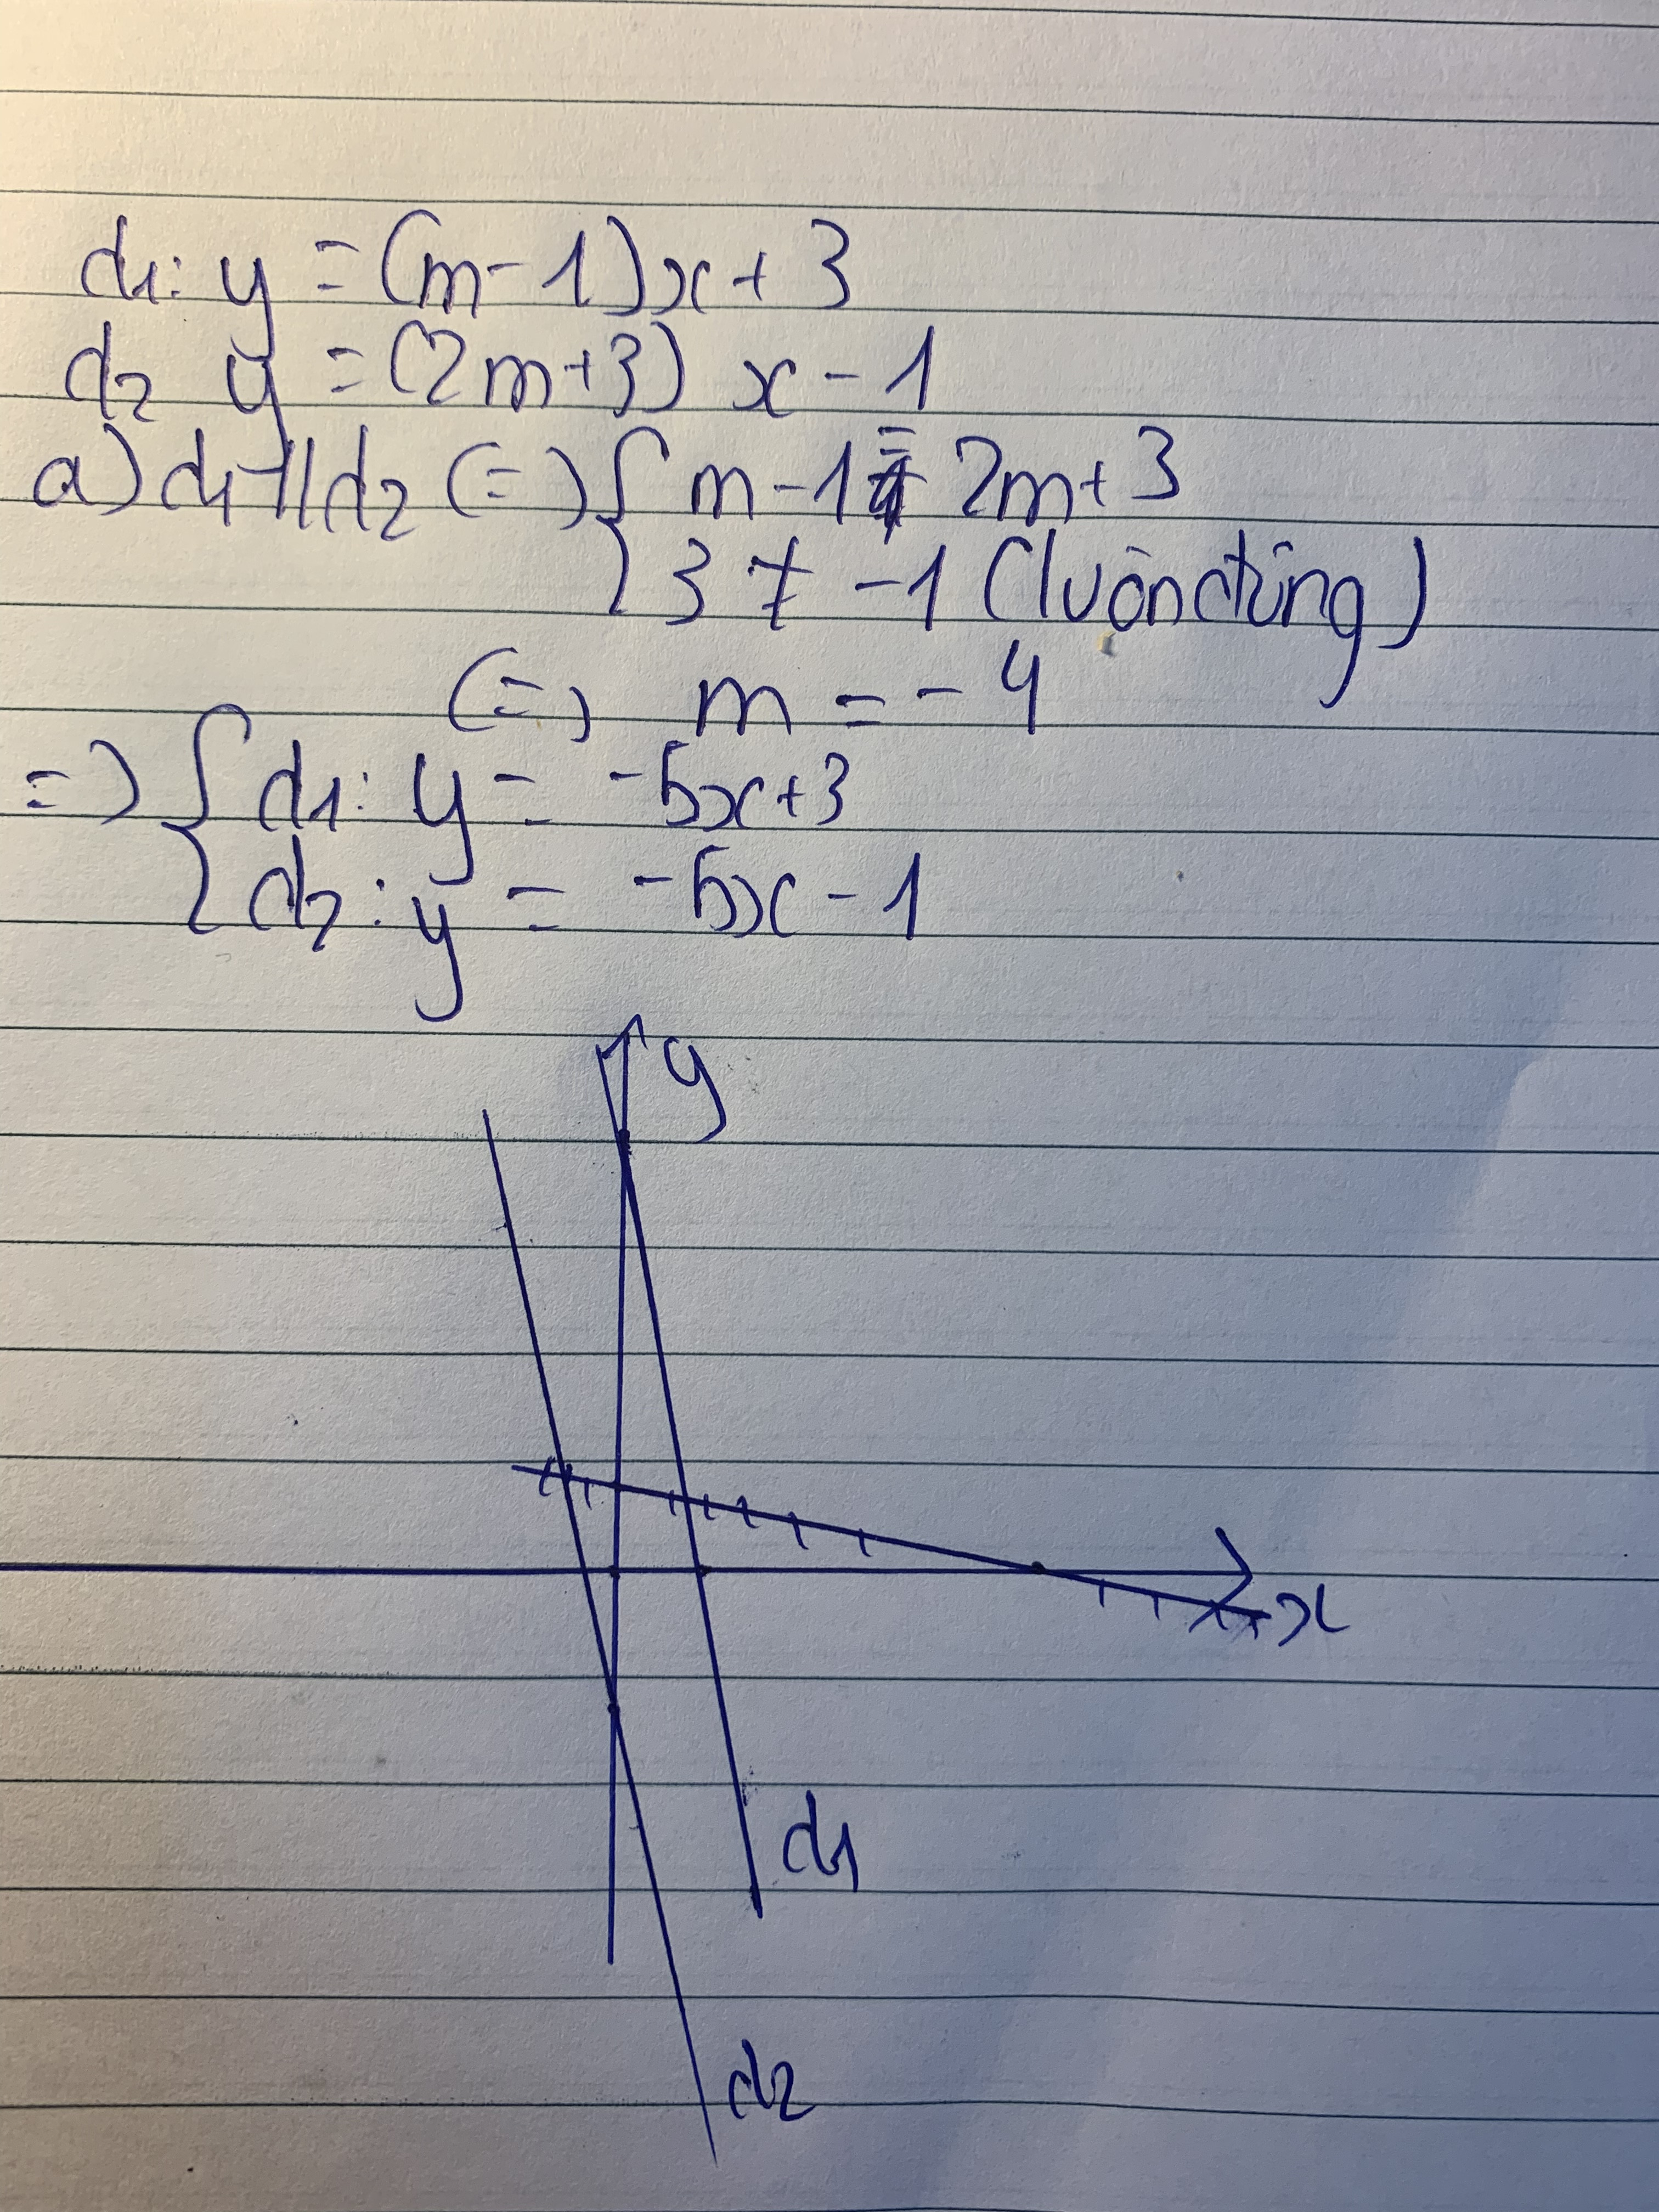 d1: y = (m-1)x + 3
d2 y = (2m+3) x - 1
a) d1 // d2 (=) { m - 1 = 2m + 3
3 ≠ -1 (luôn đúng)
(=) m = - 4
=) { d1: y = -5x+3
d2: y = -5x - 1
y
x
d1
d2